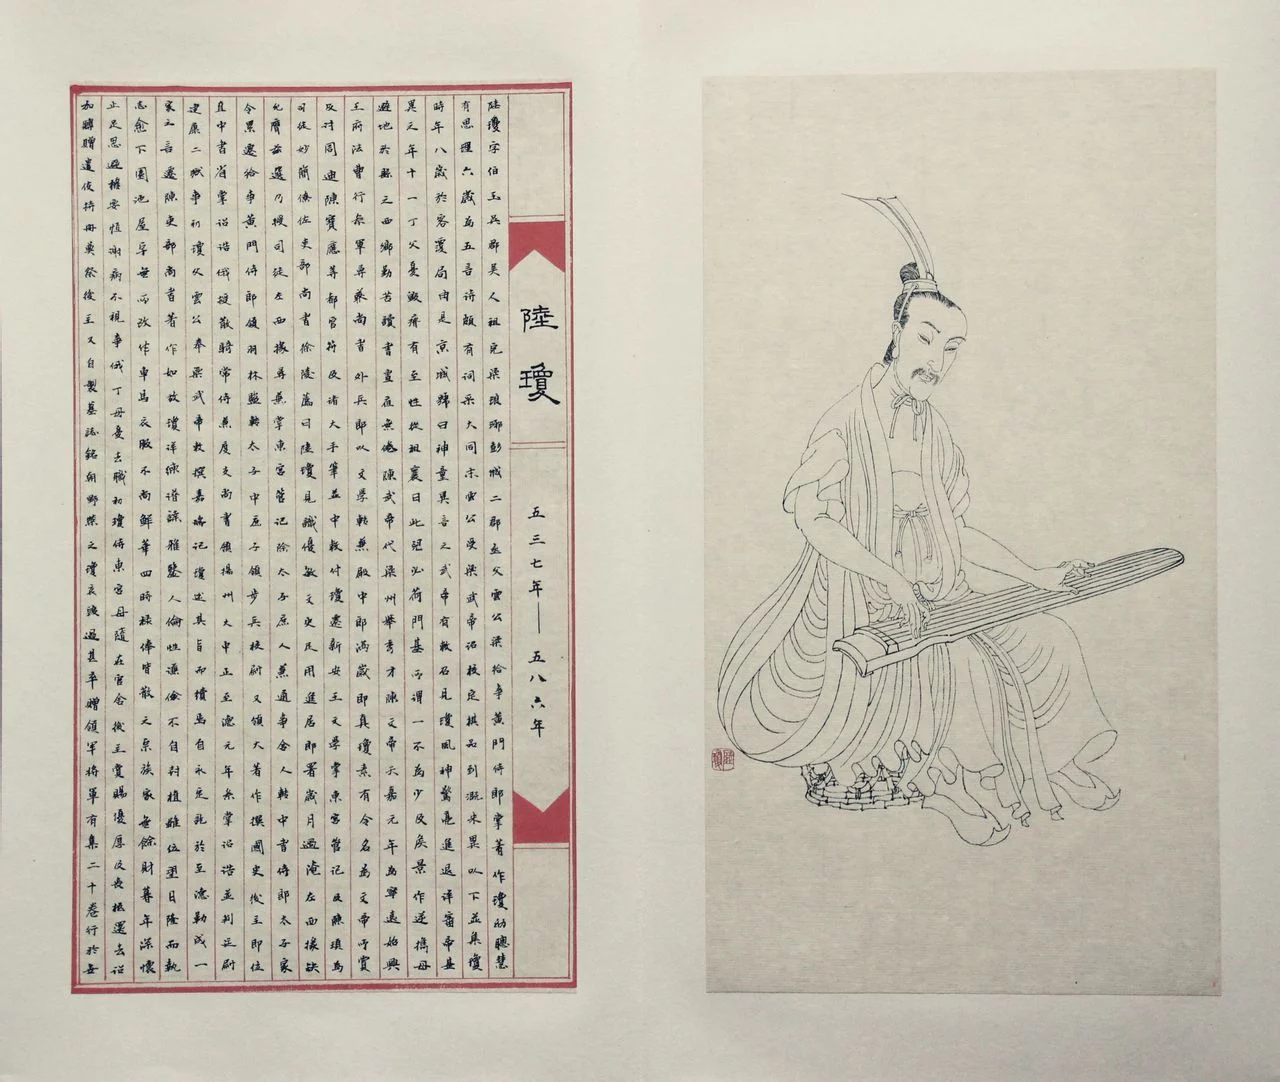 陸瓊
五三七年——五八六年
陸瓊字伯玉吳郡吳人祖完梁琅琊彭城二郡丞父雲公梁給事黃門侍郎掌著作瓊幼聰慧
有思理六歲為五言詩頗有詞采大同末雲公受梁武帝詔校定棋品到溉朱異以下並集瓊
時年八歲於客覆局由是京城號曰神童異言之武帝有敕召見瓊風神警亮進退詳審帝甚
異元年十一丁父憂毀瘠有至性從祖襄曰此兒必荷門基所謂一不為少及侯景作逆攜母
避地於縣之西鄉勤苦讀書晝夜無倦陳武帝代梁州舉秀才陳文帝天嘉元年為寧遠始興
王府法曹行參軍尋兼尚書外兵郎以文學轉兼殿中郎滿歲即真瓊素有令名為文帝所賞
及討周迪陳寶應等都官符及諸大手筆並中敕付瓊遷新安王文學掌東宮管記及陳頊為
司徒妙簡僚佐吏部尚書徐陵薦曰陸瓊見識優敏文史足用進居郎署歲月過淹左西掾缺
允膺茲選乃授司徒左西掾尋兼掌東宮管記除太子庶人兼通事舍人轉中書侍郎太子家
令累遷給事黃門侍郎領羽林監轉太子中庶子領步兵校尉又領大著作撰國史後主即位
直中書省掌詔誥俄授散騎常侍兼度支尚書領揚州大中正至德元年參掌詔誥並判廷尉
建康二獄事初瓊父雲公奉梁武帝敕撰嘉瑞記瓊述其旨而續焉自永定訖於至德勒成一
家之言遷陳吏部尚書著作如故瓊詳練譜諜雅鑒人倫性謙儉不自封植雖位望日隆而執
志愈下園池屋宇無所改作車馬衣服不尚鮮華四時祿俸皆散之宗族家無餘財暮年深懷
止足思避權要恒謝病不視事俄丁母憂去職初瓊侍東宮母隨在官舍後主賞賜優厚及喪柩還去詔
加賻贈遣使持冊奠祭後主又自製墓誌銘朝野榮之瓊哀毀過甚卒贈領軍將軍有集二十卷行於世
陸瓊